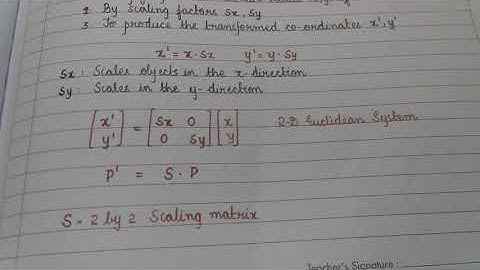 2 By scaling factors Sx, Sy
3 To produce the transformed co-ordinates x', y'
x' = x · Sx y' = y · Sy
Sx : Scales objects in the x-direction
Sy : Scales in the y-direction
[x'] = [Sx 0] [x] 2-D Euclidean System
[y'] [0 Sy] [y]
P' = S · P
S = 2 by 2 Scaling matrix
Teacher's Signature :